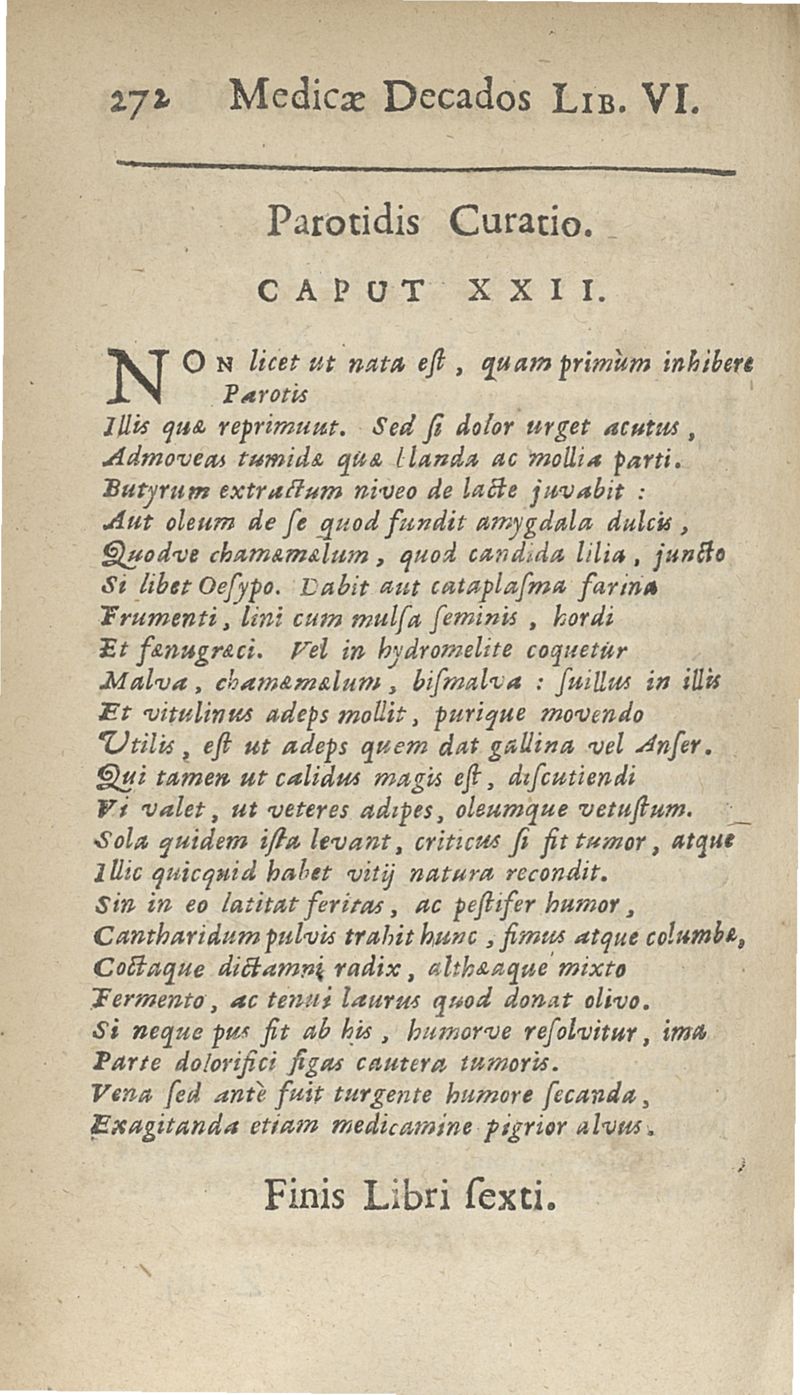 272 Medicæ Decados LIB. VI.
Parotidis Curatio.
CAPUT XXII.
NON licet ut nata eſt, quam primùm inhibere
Parotis
Illis quæ reprimuut. Sed ſi dolor urget acutus,
Admoveas tumidæ quæ blanda ac mollia parti.
Butyrum extractum niveo de lacte juvabit :
Aut oleum de ſe quod fundit amygdala dulcis,
Quodve chamæmælum, quod candida lilia, juncto
Si libet Oeſypo. Dabit aut cataplaſma farina
Frumenti, lini cum mulſa ſeminis, hordi
Et fænugræci. Vel in hydromelite coquetur
Malva, chamæmælum, biſmalva : ſuillus in illis
Et vitulinus adeps mollit, purique movendo
Utilis, eſt ut adeps quem dat gallina vel Anſer.
Qui tamen ut calidus magis eſt, diſcutiendi
Vi valet, ut veteres adipes, oleumque vetuſtum.
Sola quidem iſta levant, criticus ſi fit tumor, atque
Illic quicquid habet vitij natura recondit.
Sin in eo latitat feritas, ac peſtifer humor,
Cantharidum pulvis trahit hunc, fimus atque columbæ,
Coctaque dictamni radix, altheæaque mixto
Fermento, ac tenui laurus quod donat olivo.
Si neque pus fit ab his, humorve reſolvitur, ima
Parte dolorifici figas cautera tumoris.
Vena ſed antè fuit turgente humore ſecanda,
Exagitanda etiam medicamine pigrior alvus.
Finis Libri ſexti.